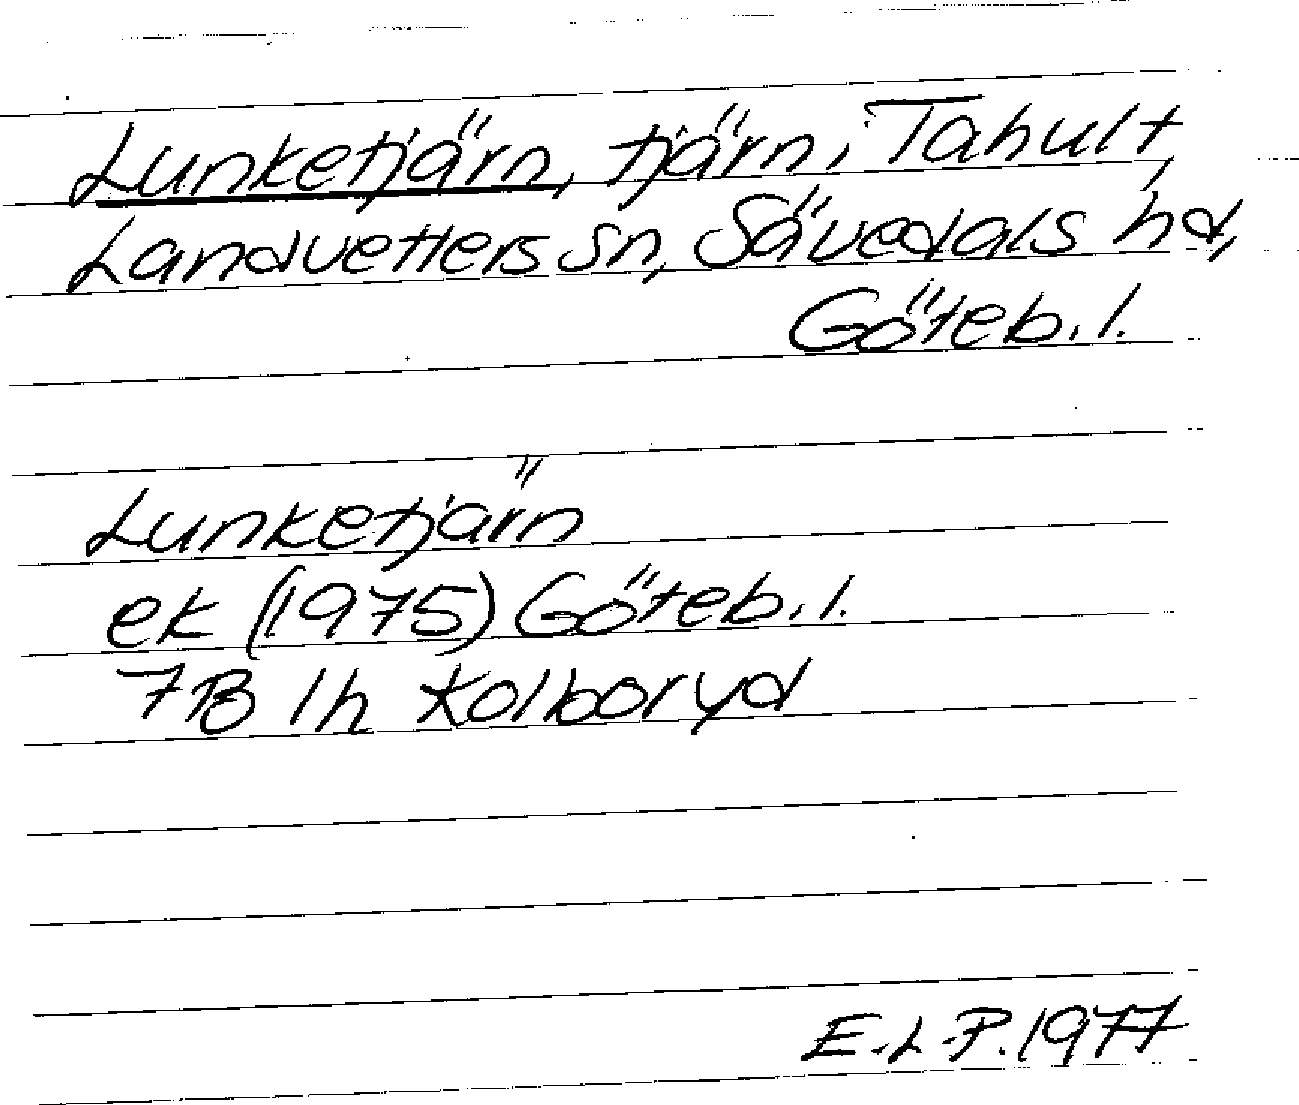 Lunketjärn, tjärn, i Tahult,
Landvetters sn, Sävedals hd,
Göteb. l.
Lunketjärn
ek (1975) Göteb. l.
7B 1h Kolboryd
E.L.P. 1977